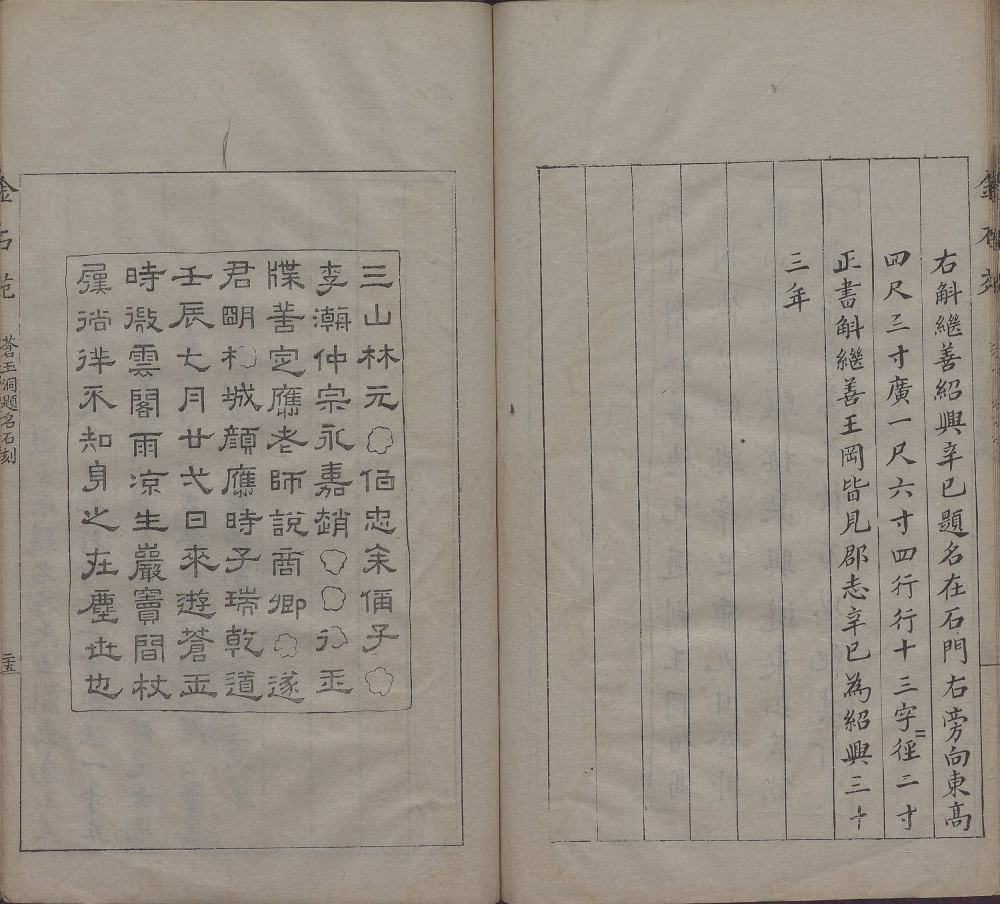 右斛繼善紹興辛巳題名在石門右旁向東高
四尺三寸廣一尺六寸四行行十三字=徑二寸
正書斛繼善王岡皆見郡志辛巳為紹興三十
三年
三山林元○伯忠余偁子○
李潮仲宗永嘉趙○○玉
牒善定應老師說商卿○遂
君明城顏應時子瑞乾道
壬辰七月廿弍日來遊蒼玉
時微雲閣雨凉生巖竇間杖
屨徜徉不知身之在塵世也
金石苑
蒼玉洞題名石刻